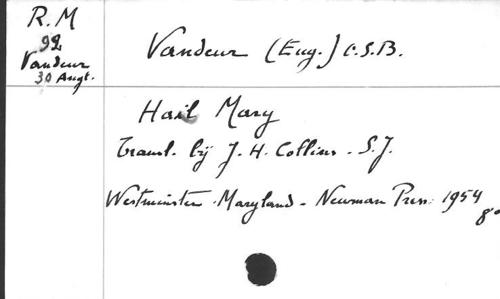 R.M
92
Vandeur
30 Angt.
Vandeur (Eug.) O.S.B.
Hail Mary
Transl. by J. H. Collins. S.J.
Westminster. Maryland - Newman Press: 1954
8°